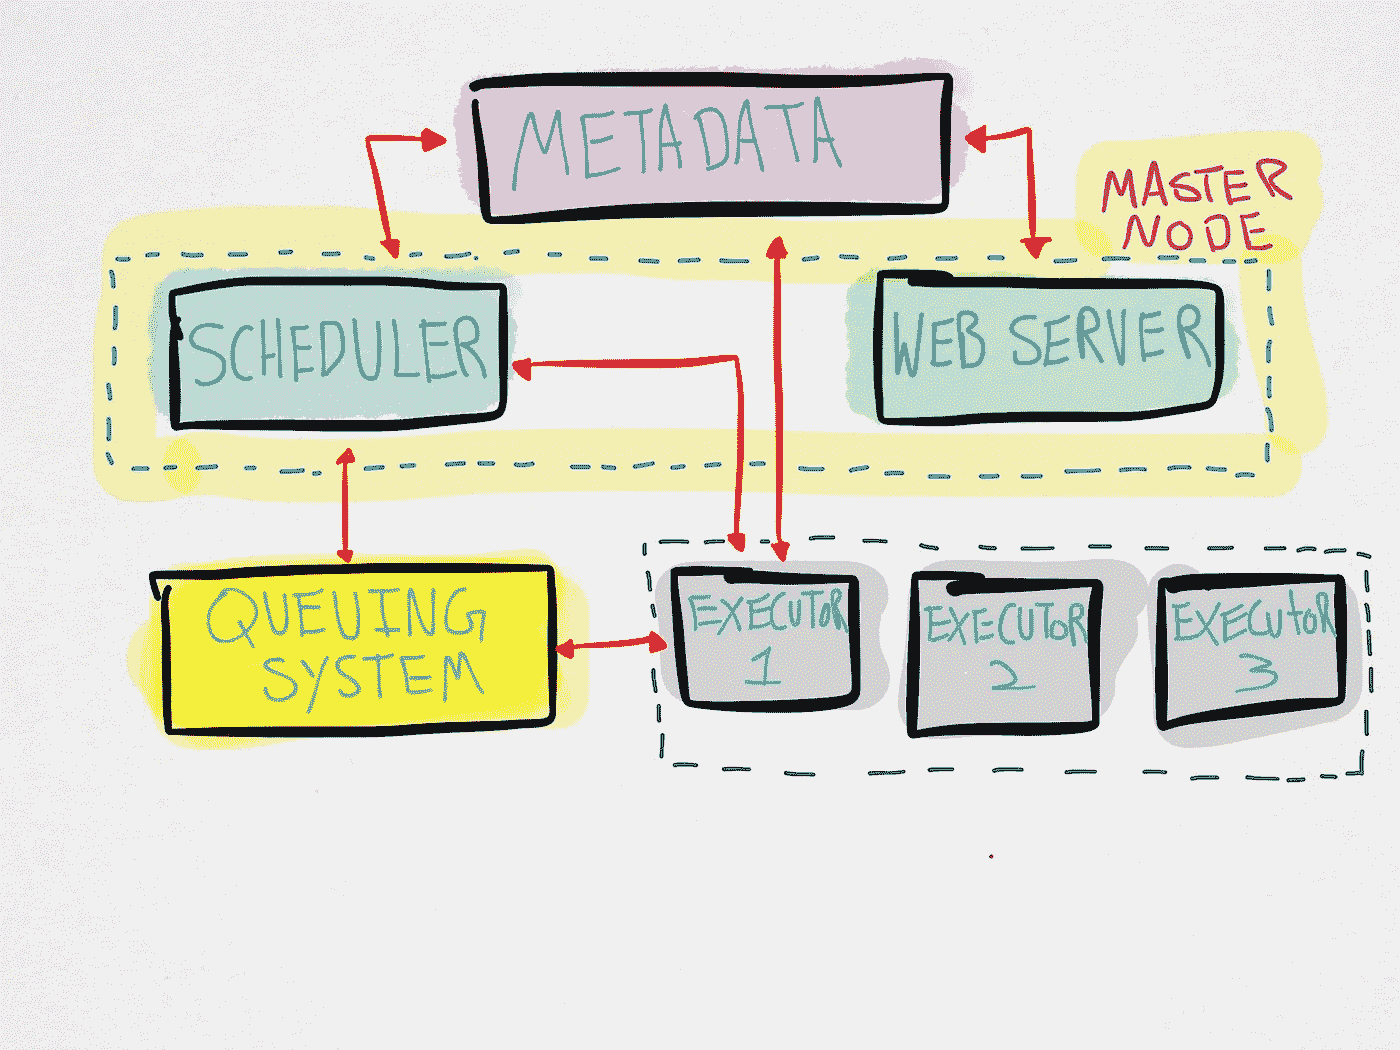 METADATA
MASTER
NODE
SCHEDULER
WEB SERVER
QUEUING
SYSTEM
EXECUTOR
1
EXECUTOR
2
EXECUtOR
3